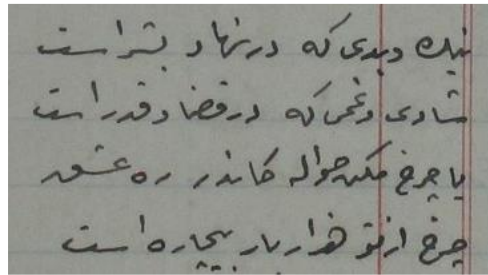 نیک و بدی که در نهاد بشر است
شادی و غمی که در قضا و قدر است
با چرخ مکن حواله کاندر ره عشق
چرخ از تو هزار بار بیچاره است